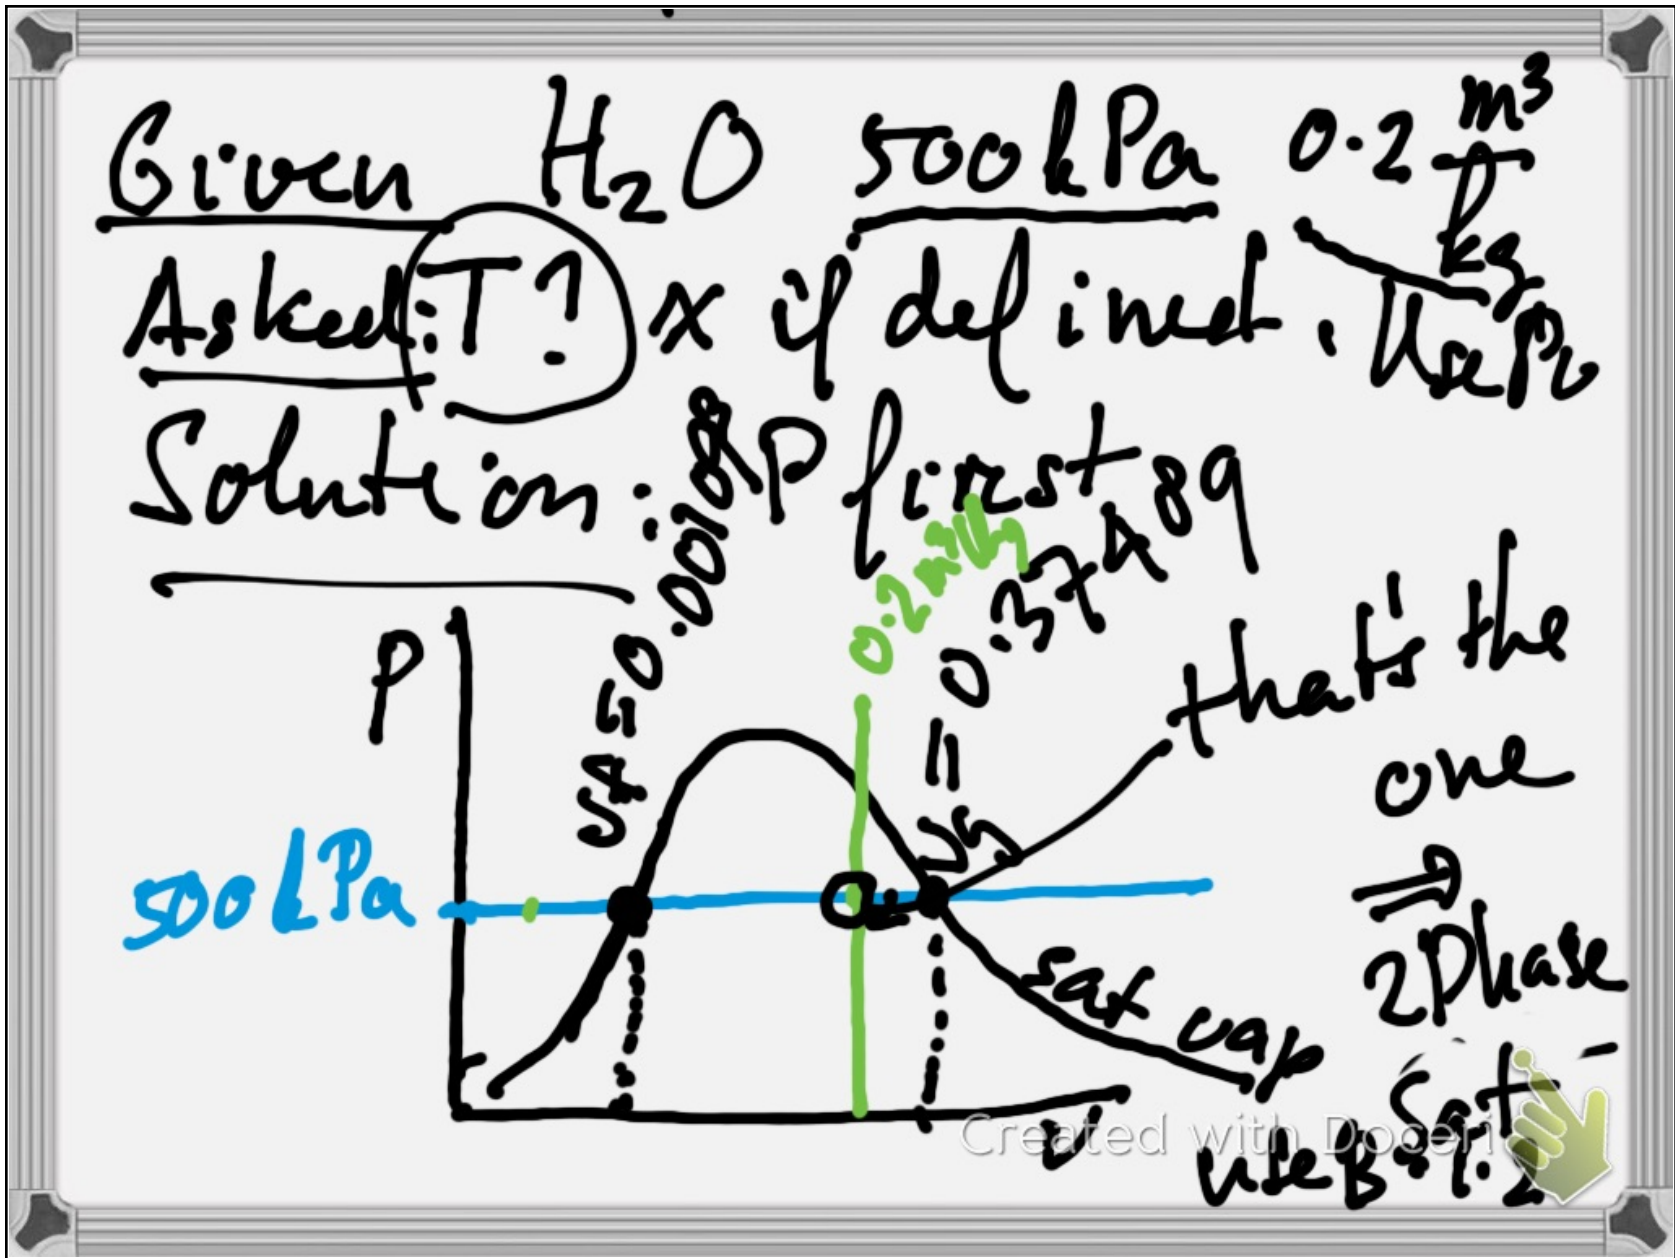 Given H₂O 500kPa 0.2 m³/kg
Asked: T? x if defined. Use Pv
Solution: P first
vf = 0.00109
0.2 m³/kg
vg = 0.37489
that's the
one
⇒
2 Phase
P
500kPa
sat vap
v
Sat
use B.1.2
Created with Doceri